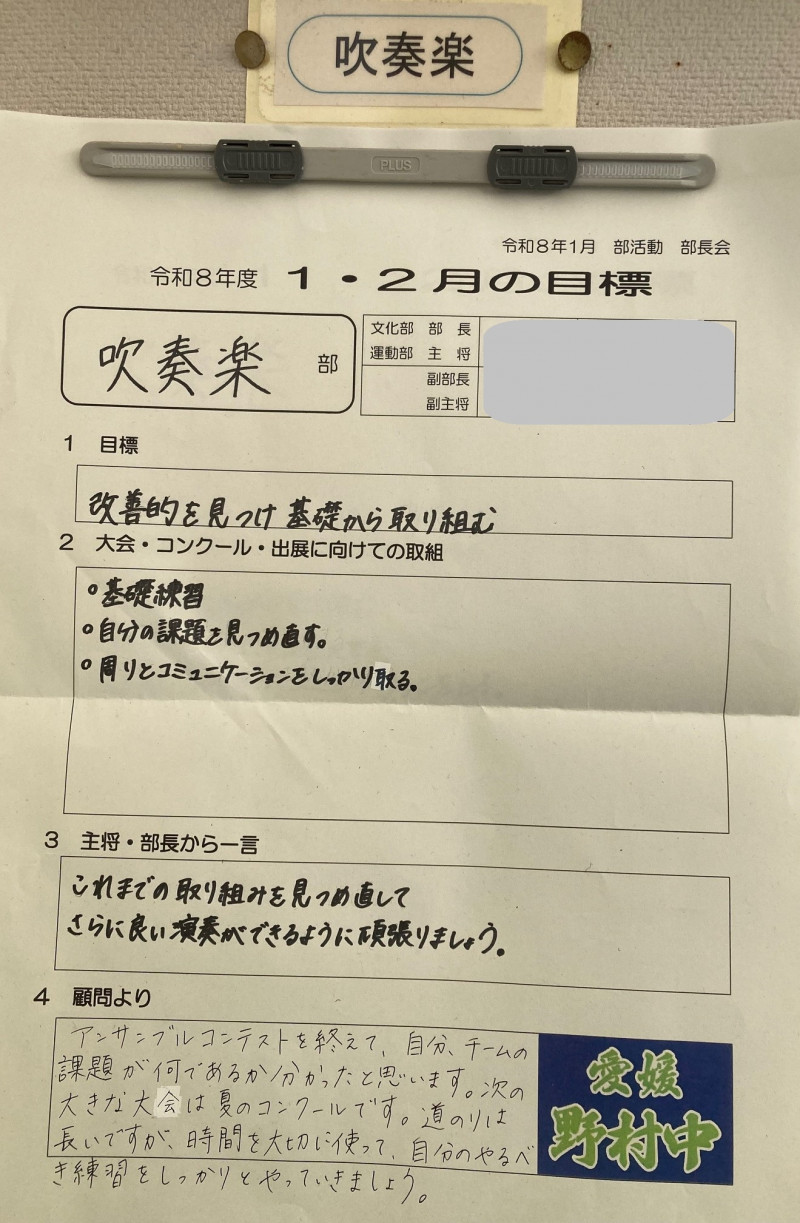 吹奏楽
PLUS
令和8年1月 部活動 部長会
令和8年度 1・2月の目標
吹奏楽 部
文化部 部 長
運動部 主 将
副部長
副主将
1 目標
改善的を見つけ基礎から取り組む
2 大会・コンクール・出展に向けての取組
○基礎練習
○自分の課題を見つめ直す。
○周りとコミュニケーションをしっかり取る。
3 主将・部長から一言
これまでの取り組みを見つめ直して
さらに良い演奏ができるように頑張りましょう。
4 顧問より
アンサンブルコンテストを終えて、自分、チームの
課題が何であるか分かったと思います。次の
大きな大会は夏のコンクールです。道のりは
長いですが、時間を大切に使って、自分のやるべ
き練習をしっかりとやっていきましょう。
愛媛
野村中